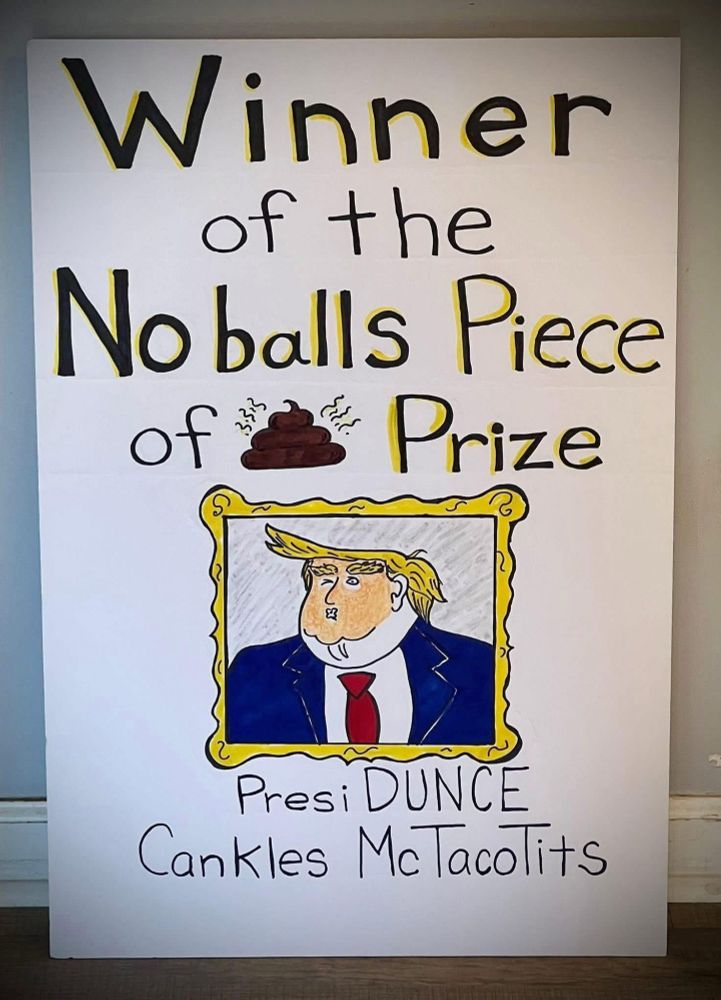 Winner
of the
No balls Piece
of Prize
PresiDUNCE
Cankles McTacoTits